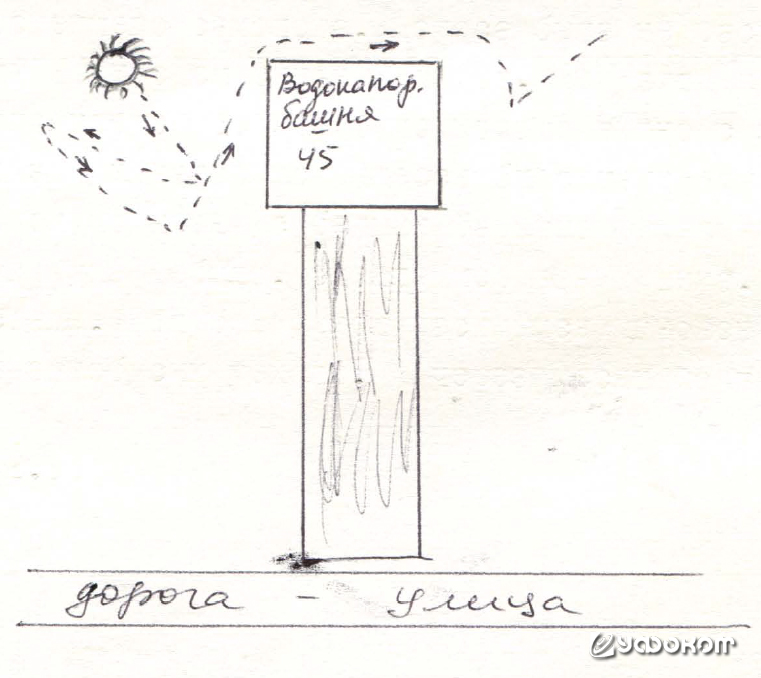 Водонапор.
башня
45
дорога - улица
уфоком